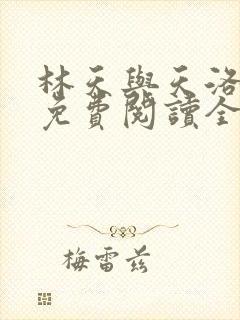 林天與天洛
免費閱讀全
梅雷茲